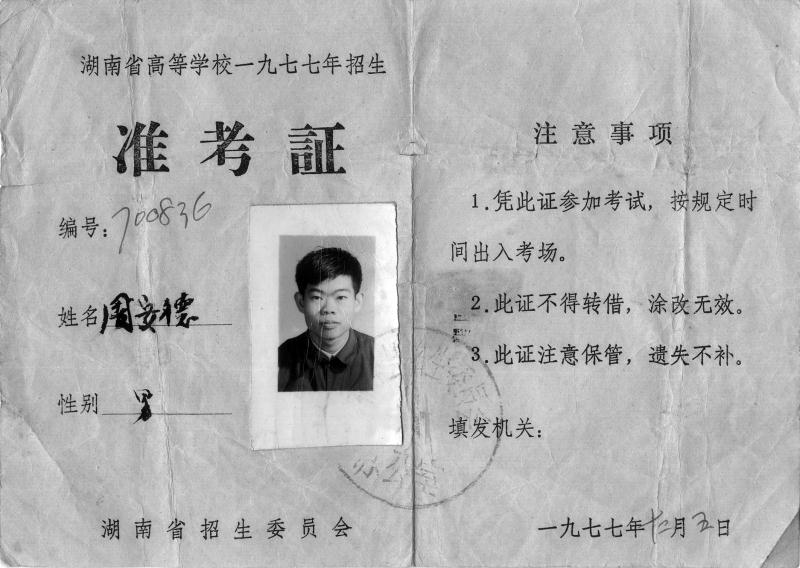 湖南省高等学校一九七七年招生
准考証
编号：700836
姓名 周安德
性别 男
湖南省招生委员会
注意事项
1.凭此证参加考试，按规定时
间出入考场。
2.此证不得转借，涂改无效。
3.此证注意保管，遗失不补。
填发机关：
一九七七年十二月五日